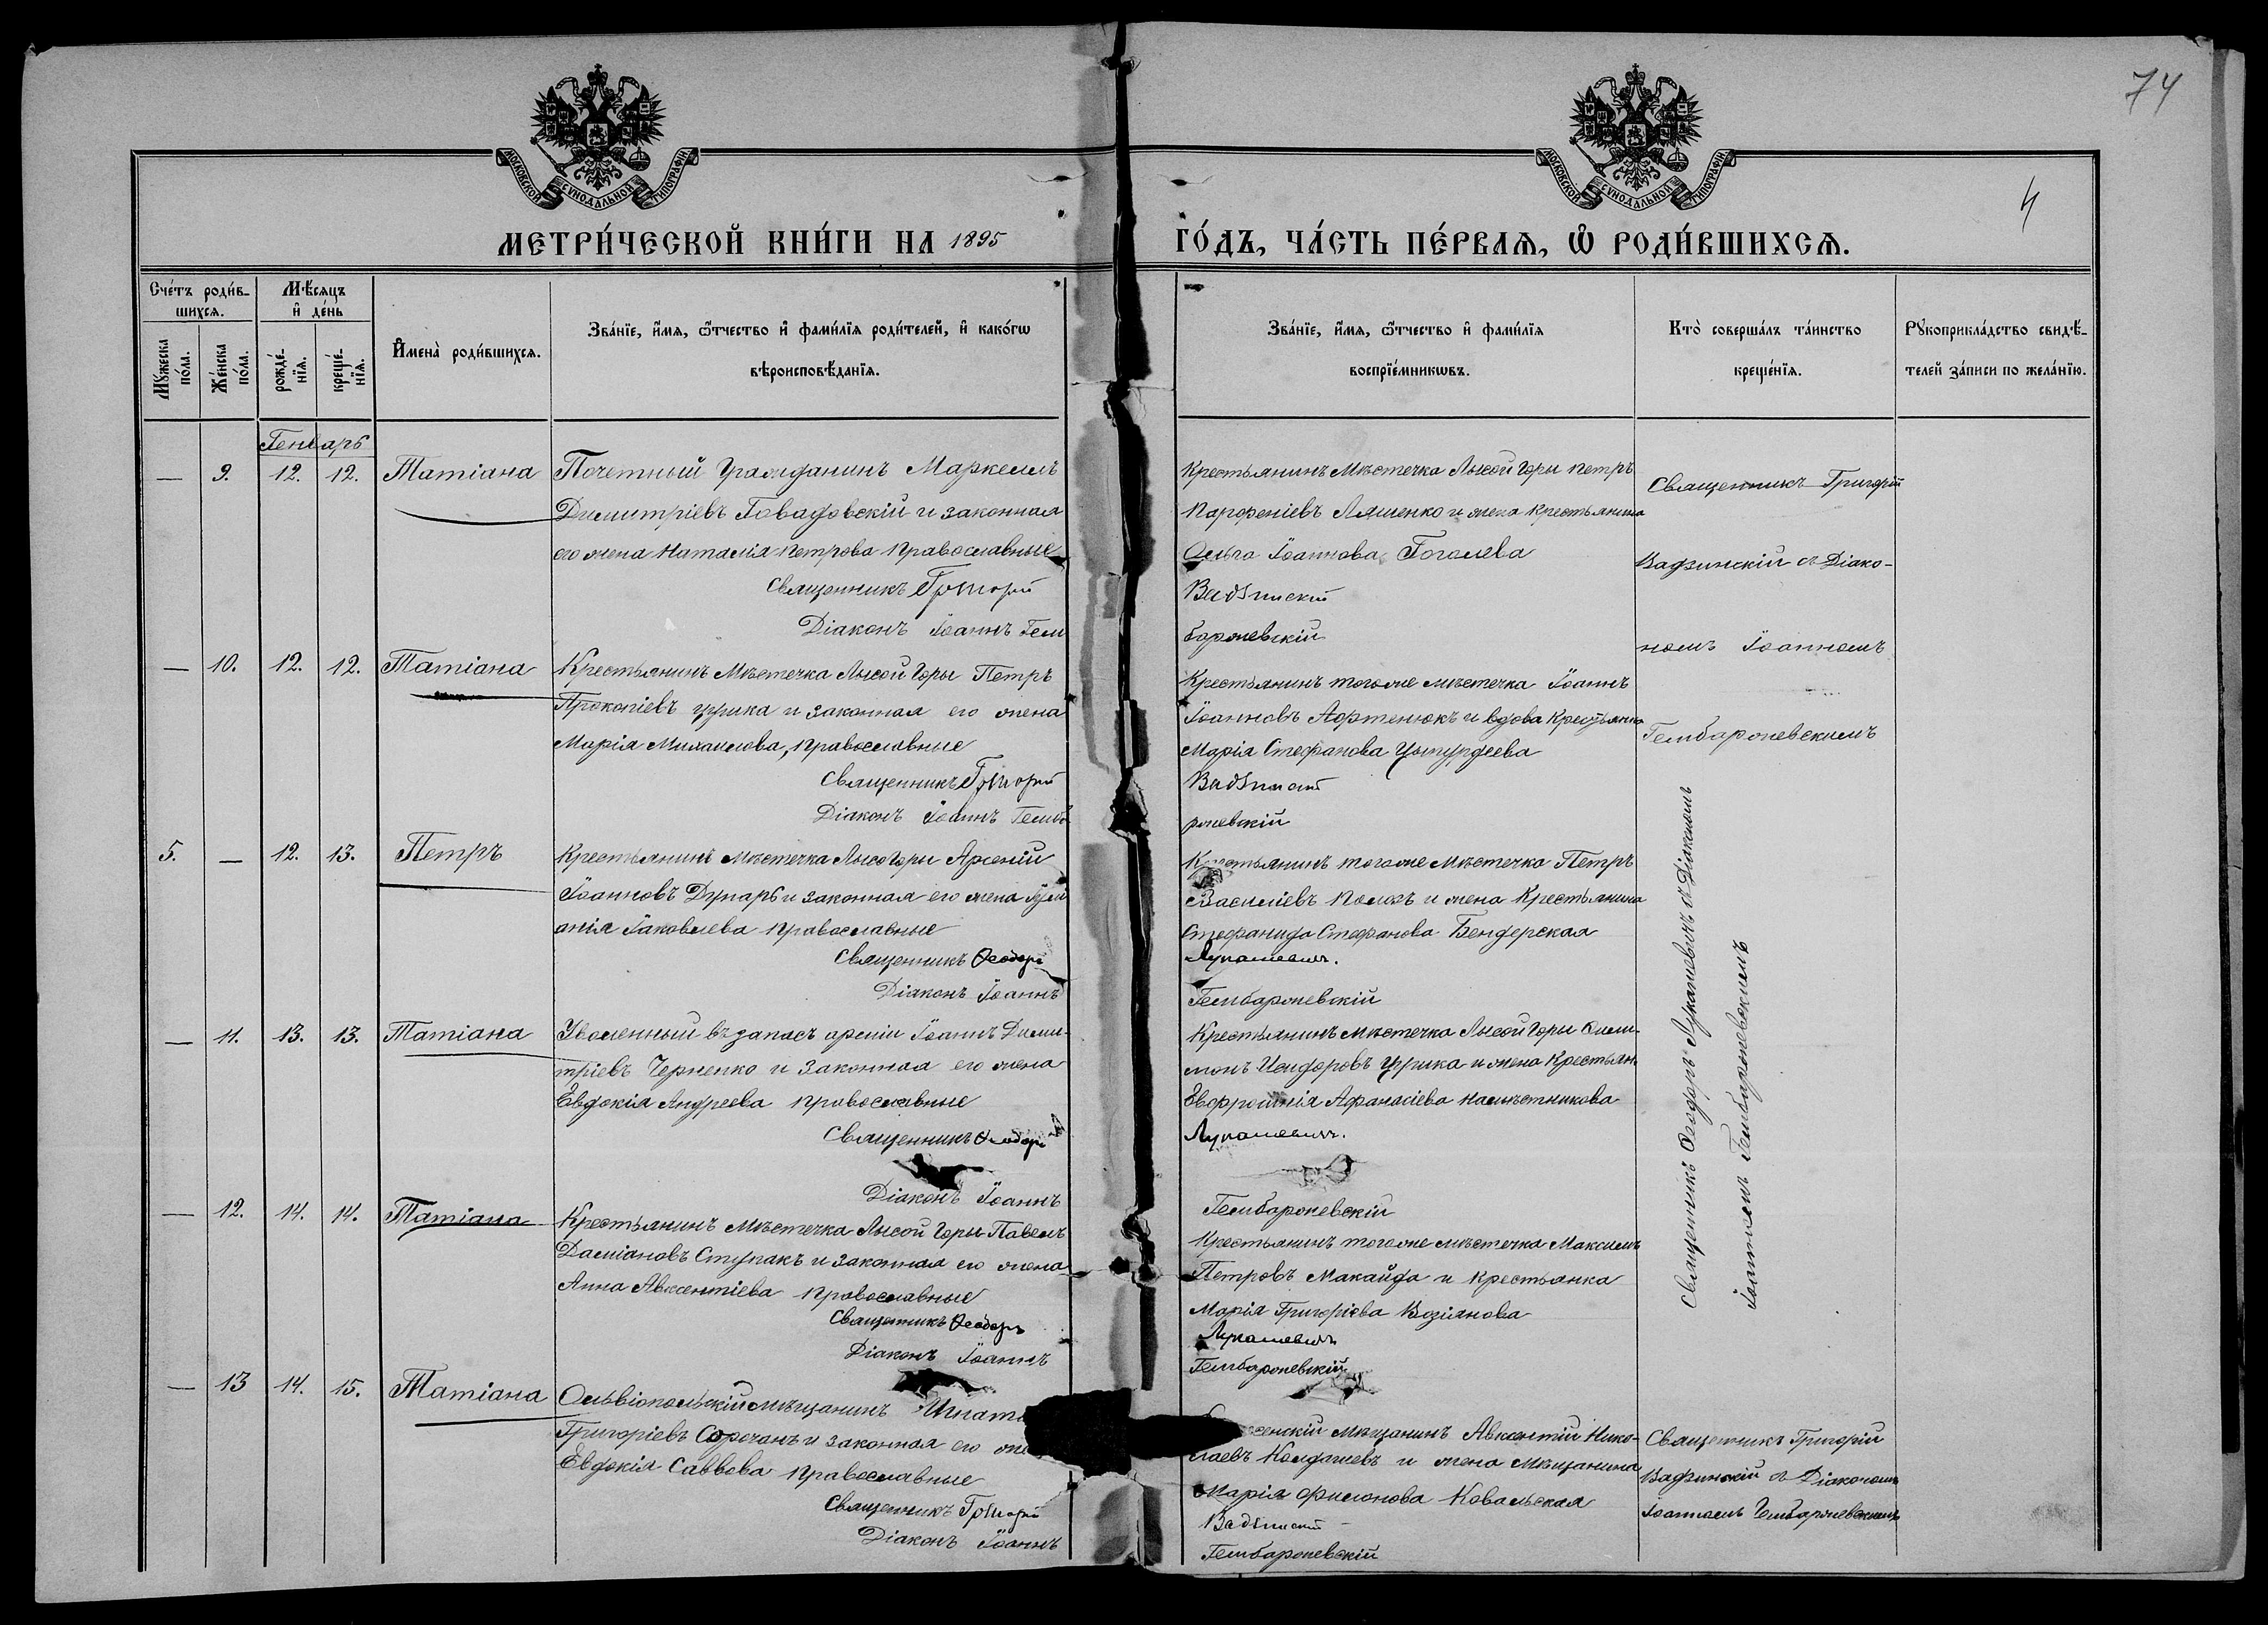 74
4
МОСКОВСКОЙ СУНОДАЛЬНОЙ ТИПОГРАФІИ
МОСКОВСКОЙ СУНОДАЛЬНОЙ ТИПОГРАФІИ
МЕТРИ́ЧЕСКОЙ КНИ́ГИ НА 1895
ГО́ДЪ, ЧА́СТЬ ПЕ́РВАѦ, Ѡ҆ РОДИ́ВШИХСѦ.
Сче́тъ роди́в-
шихсѧ.
Мꙋ́жеска по́ла.
Же́нска по́ла.
Мѣ́сѧцъ
и҆ де́нь
рожде́-
нїѧ.
креще́-
нїѧ.
И҆мена̀ роди́вшихсѧ.
Зва́нїе, и҆́мѧ, ѻ҆́тчество и҆ фами́лїѧ роди́телей, и҆ како́гѡ
вѣроисповѣ́данїѧ.
Зва́нїе, и҆́мѧ, ѻ҆́тчество и҆ фами́лїѧ
воспрїе́мникѡвъ.
Кто̀ соверша́лъ та́инство
креще́нїѧ.
Рꙋкоприкла́дство свидѣ́-
телей за́писи по жела́нїю.
Генварь
— 9. 12. 12. Татіана
Почетный Гражданинъ Маркеллъ
Димитріевъ и законная
его жена Наталія Петрова православные
Священникъ Григорій
Діаконъ Іоаннъ Гем
Крестьянинъ Мѣстечка Лысой Горы Петръ
Парфеніевъ Ляшенко и жена крестьянина
Ольга Іоаннова Гоголева
Вадзинскій
барожевскій
Священникъ Григорій
Вадзинскій съ Діако-
номъ Іоанномъ
Гембаржевскимъ
— 10. 12. 12. Татіана
Крестьянинъ Мѣстечка Лысой Горы Петръ
Прокопіевъ Цурика и законная его жена
Марія Михаилова, православные
Священникъ Григорій
Діаконъ Іоаннъ Гемба
Крестьянинъ тогоже мѣстечка Іоаннъ
Іоанновъ Афтенюкъ и вдова Крестьянка
Марія Стефанова
Вадзинскій
ржевскій
5. — 12. 13. Петръ
Крестьянинъ Мѣстечка Лысо Горы Арсеній
Іоанновъ Дунарь и законная его жена Іулі
анія Іаковлева православные
Священникъ Ѳеодоръ
Діаконъ Іоаннъ
Крестьянинъ тогоже Мѣстечка Петръ
Василіевъ и жена Крестьянина
Стефанида Стефанова Бендерская
Лукашевичъ.
Гембаржевскій
Священникъ Ѳеодоръ Лукашевичъ съ Діакономъ
Іоанномъ Гембаржевскимъ
— 11. 13. 13. Татіана
Уволенный въ запасъ арміи Іоаннъ Дими-
тріевъ Черненко и законная его жена
Евдокія Андреева православные
Священникъ Ѳеодоръ
Діаконъ Іоаннъ
Крестьянинъ Мѣстечка Лысой Горы Фили-
монъ Исидоровъ Цурика и жена Крестьян.
Евфросинія Афанасіева Намѣстникова
Лукашевичъ.
Гембаржевскій
— 12. 14. 14. Татіана
Крестьянинъ Мѣстечка Лысой Горы Павелъ
Даміановъ Ступакъ и законная его жена
Анна Авксентіева православные
Священникъ Ѳеодоръ
Діаконъ Іоаннъ
Крестьянинъ тогоже мѣстечка Максимъ
Петровъ Макайда и крестьянка
Марія Григоріева Возіянова
Лукашевичъ
Гембаржевскій
— 13 14. 15. Татіана
Ольвіопольскій мѣщанинъ
Григоріевъ Сорочанъ и законная его
Евдокія Саввова православные
Священникъ Григорій
Діаконъ Іоаннъ
Мѣщанинъ Авксентій Нико-
лаевъ Колдашевъ и жена мѣщанина
Марія Филонова Ковальская
Вадзинскій
Гембаржевскій
Священникъ Григорій
Вадзинскій съ Діакономъ
Іоанномъ Гембаржевскимъ